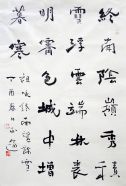 終南陰嶺秀積
雪浮雲端林表
明霽色城中增
暮寒
祖咏終南望餘雪
丁酉春